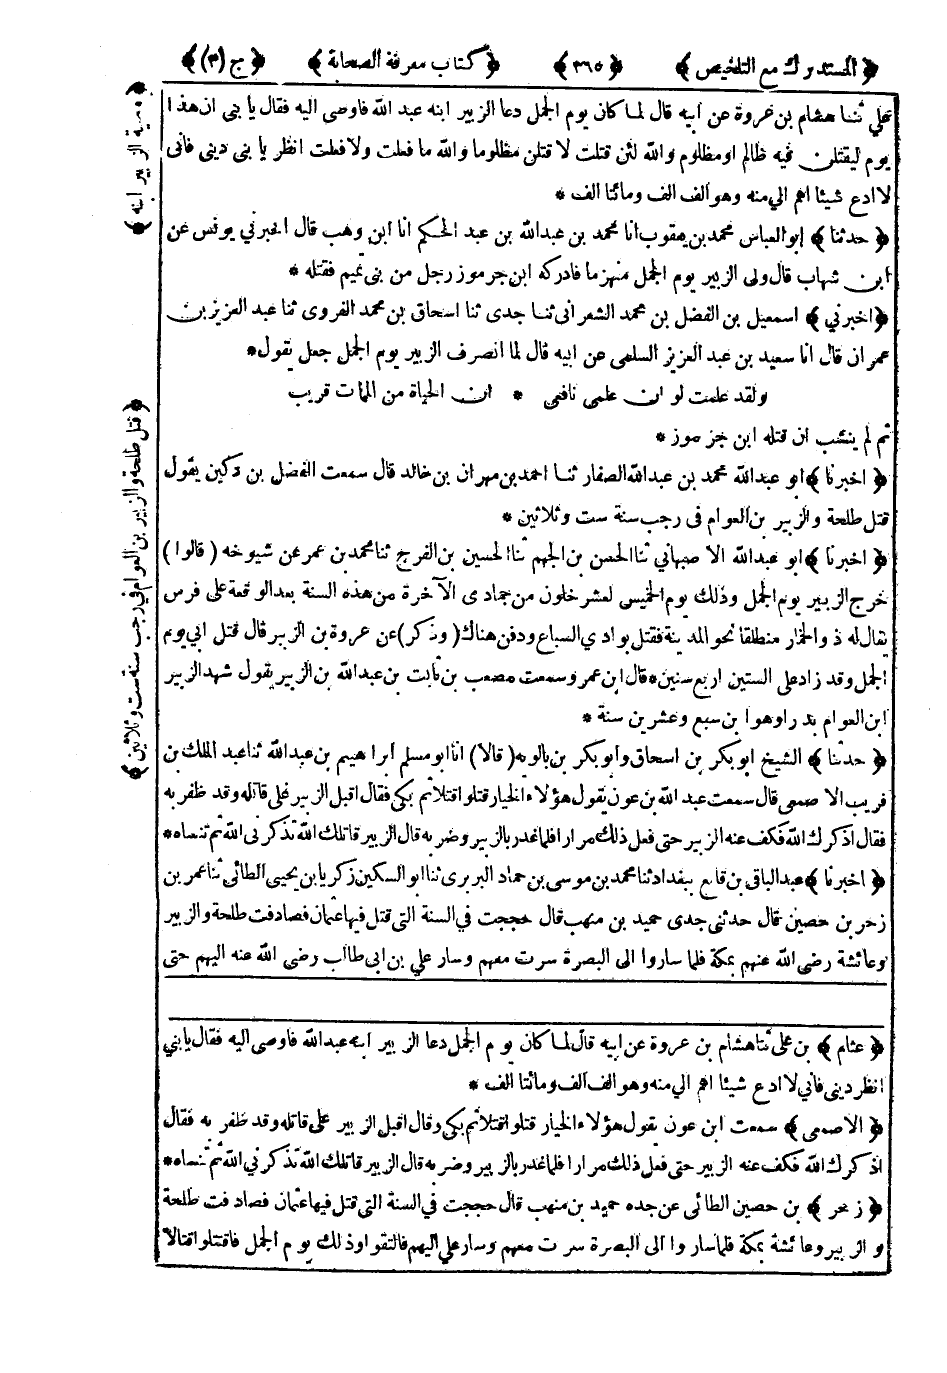 ﴿المستدرك مع التلخيص﴾ ﴿٣٦٥﴾ ﴿كتاب معرفة الصحابة﴾ ﴿ج (٣)﴾
علي ثنا هشام بن عروة عن ابيه قال لما كان يوم الجمل دعا الزبير ابنه عبد الله فاوصى اليه فقال يا بني ان هذا
يوم ليقتلن فيه ظالم او مظلوم والله لئن قتلت لا قتلن مظلوما والله ما فعلت ولا فعلت انظر يا بنى دينى فانى
لا ادع شيئا اهم الي منه وهو الف الف ومائتا الف *
﴿حدثنا﴾ ابو العباس محمد بن يعقوب انا محمد بن عبد الله بن عبد الحكم انا ابن وهب قال اخبرني يونس عن
ابن شهاب قال ولى الزبير يوم الجمل منهزما فادركه ابن جرموز رجل من بنى تميم فقتله *
﴿اخبرني﴾ اسمعيل بن الفضل بن محمد الشعرانى ثنا جدى ثنا اسحاق بن محمد الفروى ثنا عبد العزيز بن
عمران قال انا سعيد بن عبد العزيز السلمى عن ابيه قال لما انصرف الزبير يوم الجمل جعل يقول *
ولقد علمت لو ان علمى نافعى * ان الحياة من الممات قريب
ثم لم ينشب ان قتله ابن جرموز *
﴿اخبرنا﴾ ابو عبد الله محمد بن عبد الله الصفار ثنا احمد بن مهران بن خالد قال سمعت الفضل بن دكين يقول
قتل طلحة والزبير بن العوام فى رجب سنة ست وثلاثين *
﴿اخبرنا﴾ ابو عبد الله الاصبهاني ثنا الحسن بن الجهم ثنا الحسين بن الفرج ثنا محمد بن عمر عن شيوخه (قالوا)
خرج الزبير يوم الجمل وذلك يوم الخميس لعشر خلون من جمادى الآخرة من هذه السنة بعد الوقعة على فرس
يقال له ذو الخمار منطلقا نحو المدينة فقتل بوادي السباع ودفن هناك (وذكر) عن عروة بن الزبير قال قتل ابي يوم
الجمل وقد زاد على الستين اربع سنين * قال ابن عمر وسمعت مصعب بن ثابت بن عبد الله بن الزبير يقول شهد الزبير
ابن العوام بدرا وهو ابن سبع وعشرين سنة *
﴿حدثنا﴾ الشيخ ابو بكر بن اسحاق وأبو بكر بن بالويه (قالا) انا ابو مسلم ابراهيم بن عبد الله ثنا عبد الملك بن
قريب الاصمعى قال سمعت عبد الله بن عون يقول هؤلاء الخيار قتلوا قتلا ثم بكى فقال اقبل الزبير على قاتله وقد ظفر به
فقال اذكرك الله فكف عنه الزبير حتى فعل ذلك مرارا فلما غدر بالزبير وضربه قال الزبير قاتلك الله تذكر نى الله ثم تنساه *
﴿اخبرنا﴾ عبد الباقى بن قانع ببغداد ثنا محمد بن موسى بن حماد البربرى ثنا ابو السكين زكريا بن يحيى الطائى ثنا عمر بن
زحر بن حصين قال حدثنى جدى حميد بن منهب قال حججت في السنة التى قتل فيها عثمان فصادفت طلحة والزبير
وعائشة رضى الله عنهم بمكة فلما ساروا الى البصرة سرت معهم وسار علي بن ابى طالب رضى الله عنه اليهم حتى
﴿عثام﴾ بن على ثنا هشام بن عروة عن ابيه قال لما كان يوم الجمل دعا الزبير ابنه عبد الله فاوصى اليه فقال يا بني
انظر دينى فاني لا ادع شيئا اهم الي منه وهو الف الف ومائتا الف *
﴿الاصمعى﴾ سمعت ابن عون يقول هؤلاء الخيار قتلوا قتلا ثم بكى وقال اقبل الزبير على قاتله وقد ظفر به فقال
اذكرك الله فكف عنه الزبير حتى فعل ذلك مرارا فلما غدر بالزبير وضربه قال الزبير قاتلك الله تذكر ني الله ثم تنساه *
﴿زحر﴾ بن حصين الطائى عن جده حميد بن منهب قال حججت في السنة التي قتل فيها عثمان فصادفت طلحة
والزبير وعائشة بمكة فلما ساروا الى البصرة سرت معهم وسار علي اليهم فالتقوا وذلك يوم الجمل فاقتتلوا قتالا
﴿وصية الزبير ابنه﴾
﴿قتل طلحة والزبير بن العوام في رجب سنة ست وثلاثين﴾